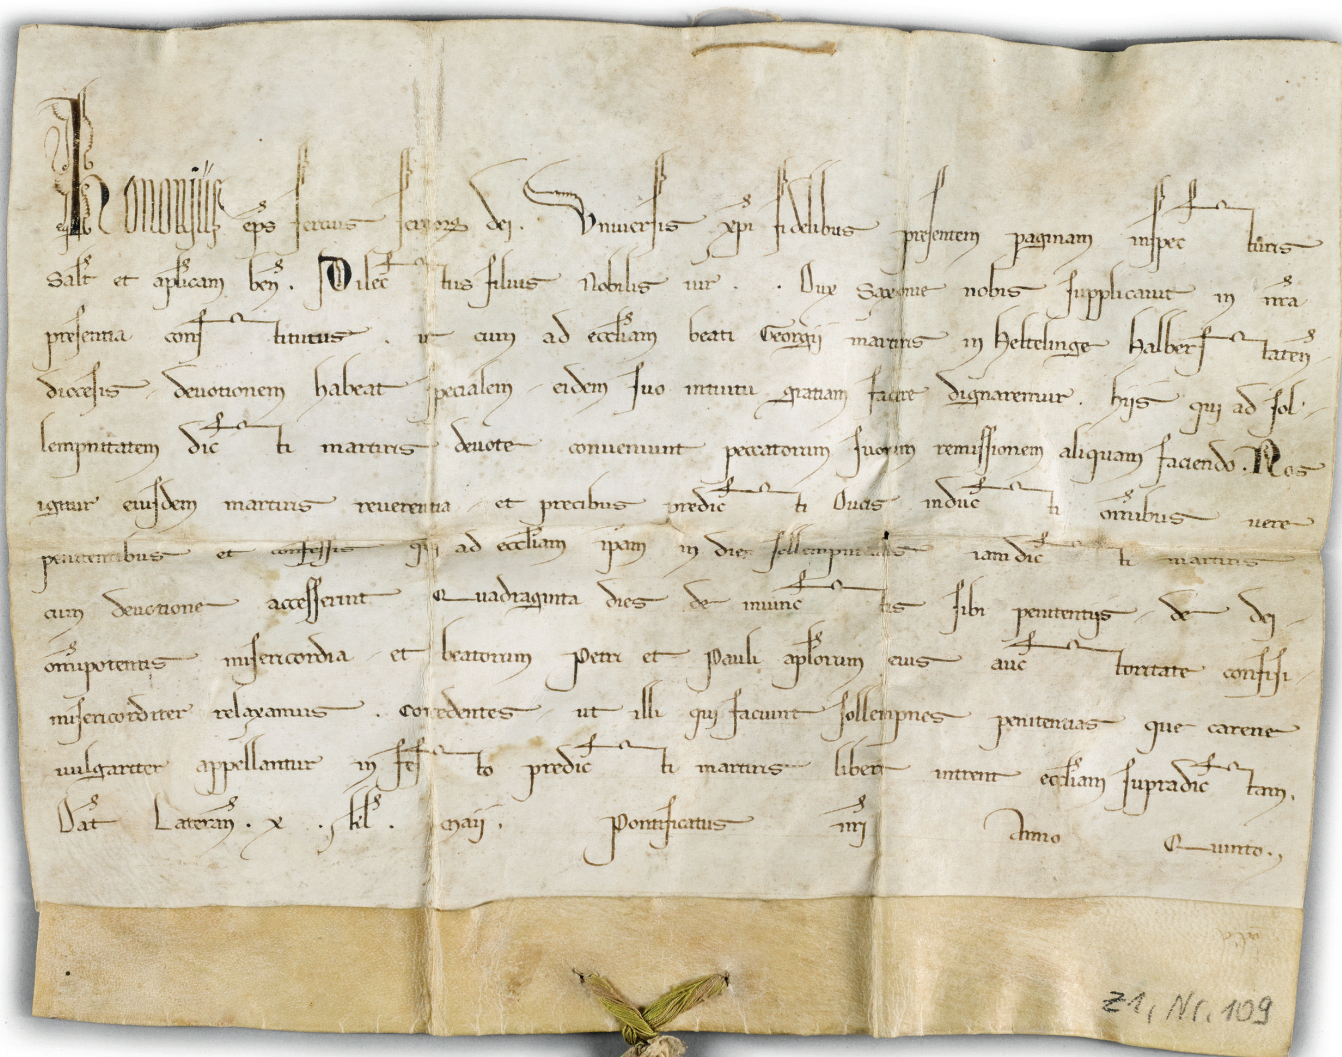 Honorius ep̄s servus servorꝝ dei. Universis xp̄i fidelibus presentem paginam inspecturis
Salt̄ et ap̄licam ben̄. Dilectus filius Nobilis vir . . Dux Saxonie nobis supplicavit in nr̄a
presentia constitutus . ut cum ad eccl̄iam beati Georgij martiris in Hekelinge Halberstaten̄
diocesis devotionem habeat specialem eidem suo intuitu gratiam facere dignaremur . hijs qui ad sol-
lempnitatem dicti martiris devote conveniunt peccatorum suorum remissionem aliquam faciendo. Nos
igitur eiusdem martiris reverentia et precibus predicti Ducis inducti om̄ibus vere
penitentibus et confessis qui ad eccl̄iam ip̄am in die sollempnitatis iamdicti martiris
cum devotione accesserint Quadraginta dies de iniunctis sibi penitentijs de dei
om̄ipotentis misericordia et beatorum Petri et Pauli apl̄orum eius auctoritate confisi
misericorditer relaxamus . Concedentes ut illi qui faciunt sollempnes penitencias que carene
vulgariter appellantur in festo predicti martiris libere intrent eccl̄iam supradictam.
Dat̄ Lateran̄ . x . kl̄ . Maij . Pontificatus nr̄i Anno Quinto .,
Z1, Nr. 109